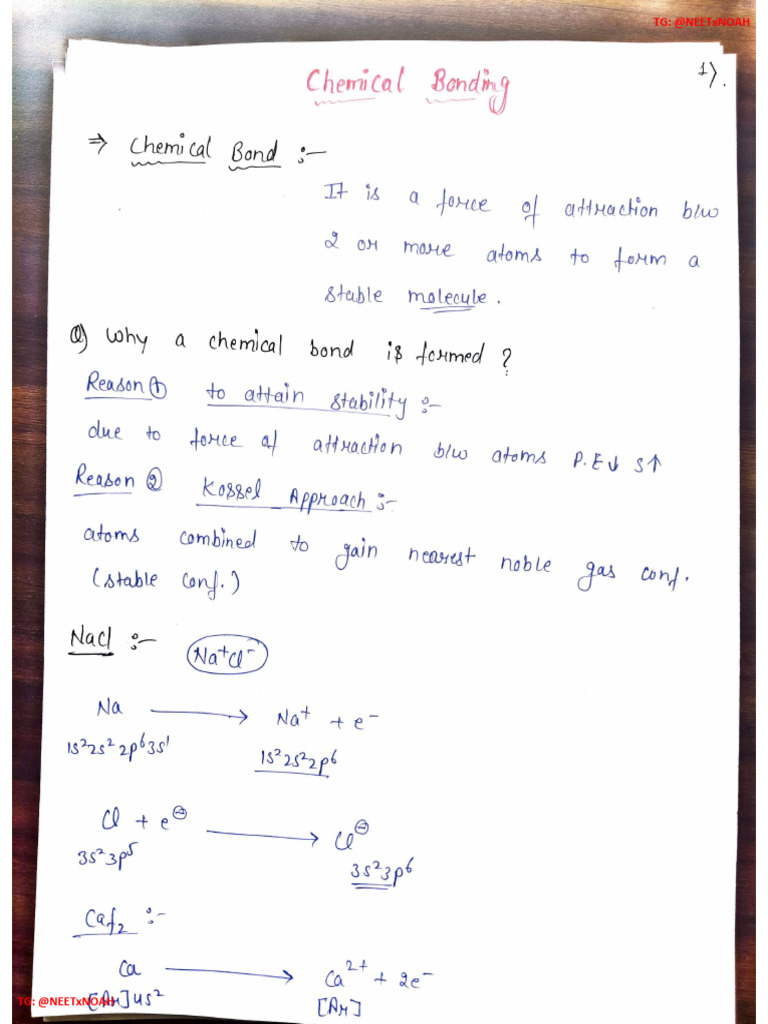 TG: @NEETxNOAH
Chemical Bonding
1).
⇒ Chemical Bond :-
It is a force of attraction b/w
2 or more atoms to form a
stable molecule.
Q) Why a chemical bond is formed ?
Reason ① to attain stability :-
due to force of attraction b/w atoms P.E↓ S↑
Reason ② Kossel Approach :-
atoms combined to gain nearest noble gas conf.
(stable conf.)
NaCl :- Na⁺Cl⁻
Na ⟶ Na⁺ + e⁻
1s²2s²2p⁶3s¹ 1s²2s²2p⁶
Cl + e⊖ ⟶ Cl⊖
3s²3p⁵ 3s²3p⁶
Caf₂ :-
Ca ⟶ Ca²⁺ + 2e⁻
TG: @NEETxNOAH
[Ar]4s² [Ar]